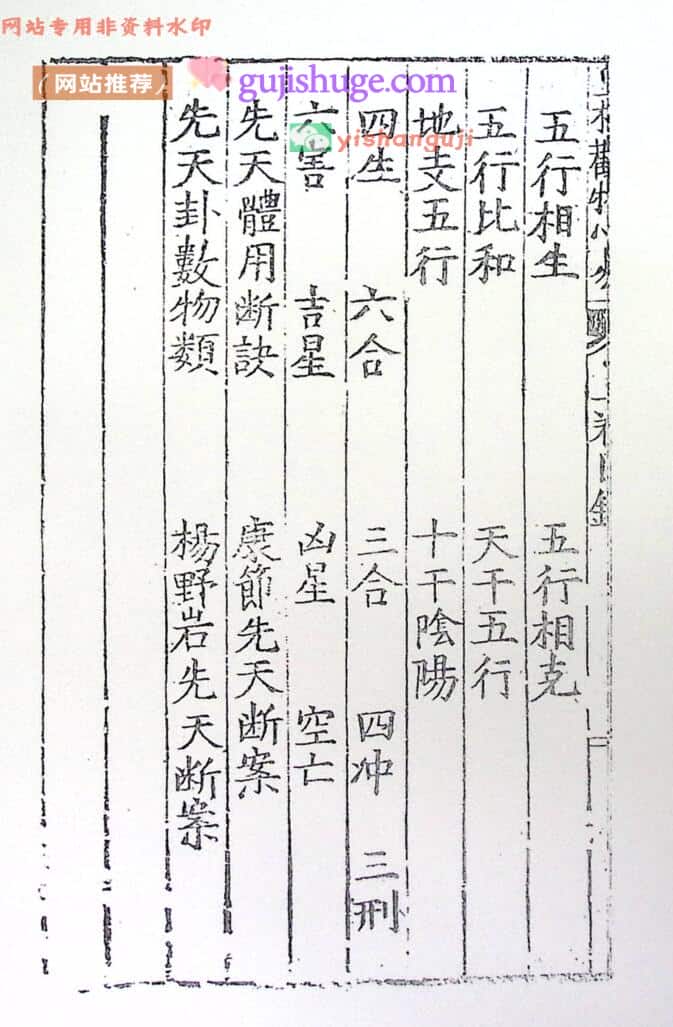 网站专用非资料水印
（网站推荐）
gujishuge.com
yishanguji
五行相生　五行相克
五行比和　天干五行
地支五行　十干陰陽
四生　六合　三合　四冲　三刑
六害　吉星　凶星　空亡
先天體用断訣　康節先天断案
先天卦數物類　楊野岩先天断案